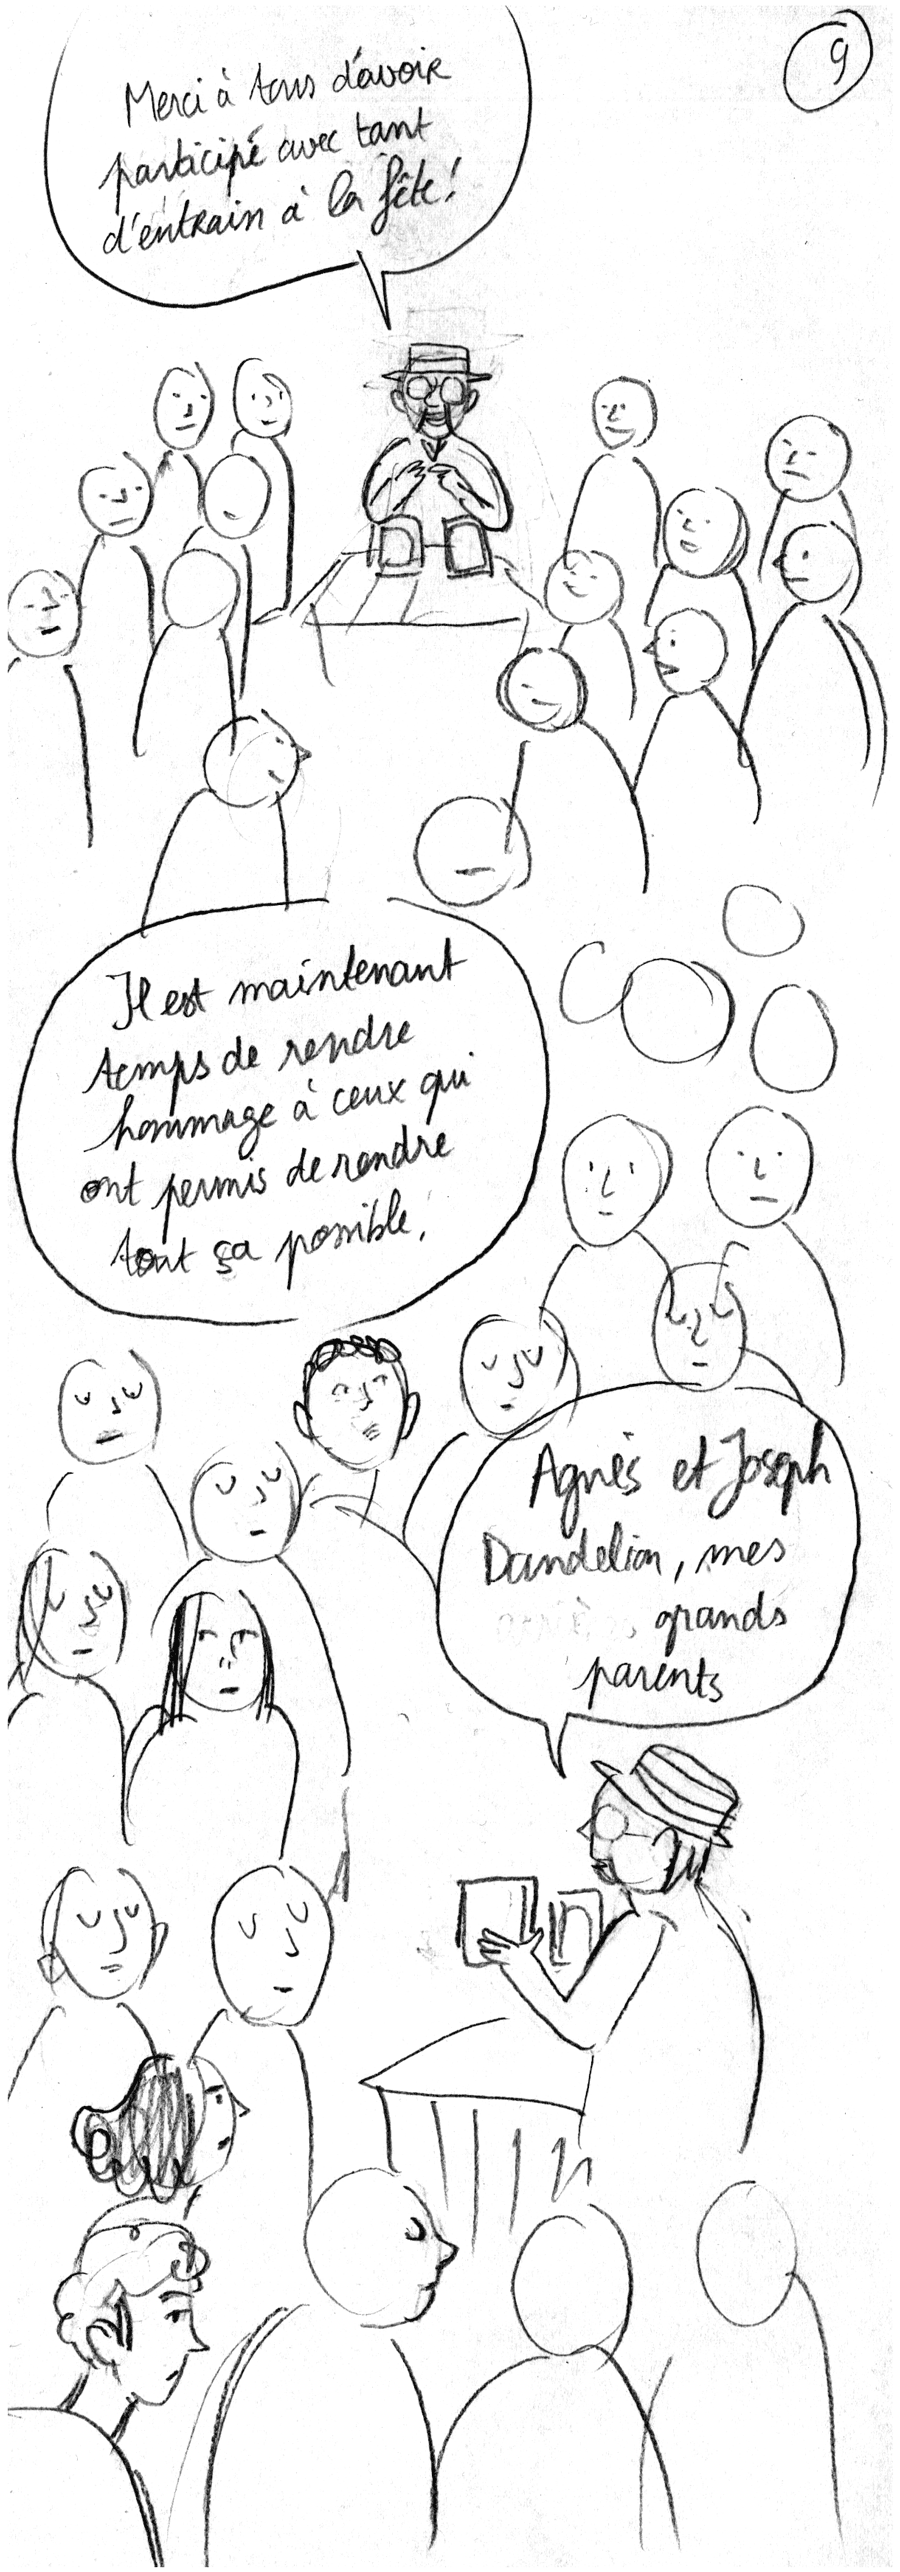 9
Merci à tous d'avoir
participé avec tant
d'entrain à la fête!
Il est maintenant
temps de rendre
hommage à ceux qui
ont permis de rendre
tout ça possible.
Agnès et Joseph
Dandelion, mes
grands
parents